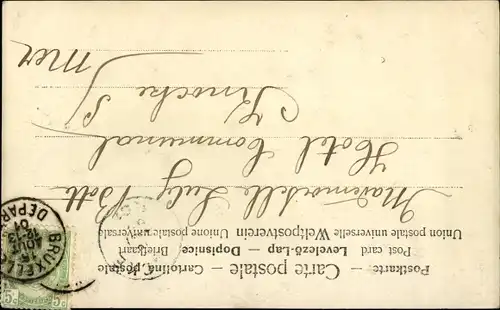 Postkarte — Carte postale — Cartolina postale
Post card — Levelezö-Lap — Dopisnice — Briefkaart
Union postale universelle Weltpostverein Unione postale universale
Mademoiselle July Bott
Hotel Communal
Knocke s/
Mer
BRUXELLES
DEPART
AOUT
5c 5c